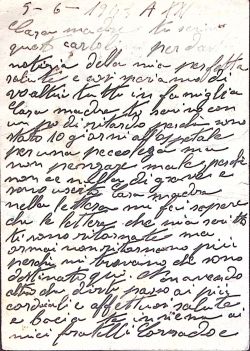 5-6-1943 A XXI
Cara madre ti scrivo
questa cartolina per darti
notizia della mia perfetta
salute e così speriamo di
voialtri tutti in famiglia
Cara madre ti scrivo con
un po di ritardo perche sono
stato 10 giorni all ospetale
per una piccolezza ma
non penzare male perche
non ce nulla di grave e
sono uscito Cara madre
nella lettera mi fai sapere
che le lettere che mia
ti sono ritornate ma
ormai non ritornano più
perche mi trovano che sono
destinato qui. Non avendo
altro da dirti passo ai più
cordiali e affettuosi salute
e bacia te insieme ai
miei fratelli Corrado e